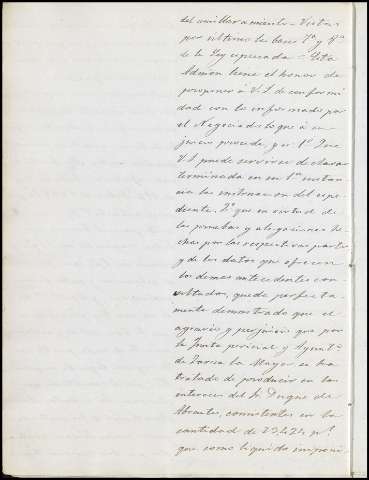 del amillaramiento = Vistas
por ultimo las bases 7ª y 8ª
de la Ley espresada = Esta
Admon tiene el honor de
proponer á V.S. de conformi
dad con lo informado por
el Negociado lo que á su
juicio procede, y es 1º Que
V.S. puede servirse declarar
terminada en su 1ª instan
cia la instruccion del espe
diente, 2º que en virtud de
las pruebas y alegaciones he
chas por las respectivas partes
y de los datos que ofrecen
los demas antecedentes con
sultados, queda perfecta-
mente demostrado que el
agravio y perjuicio que por
la Junta pericial y Ayuntº
de Garcia la Mayor se ha
tratado de producir en los
intereses del Sr Duque de
Abrantes, consistentes en la
cantidad de 29,424 rs
que como liquido imponi-